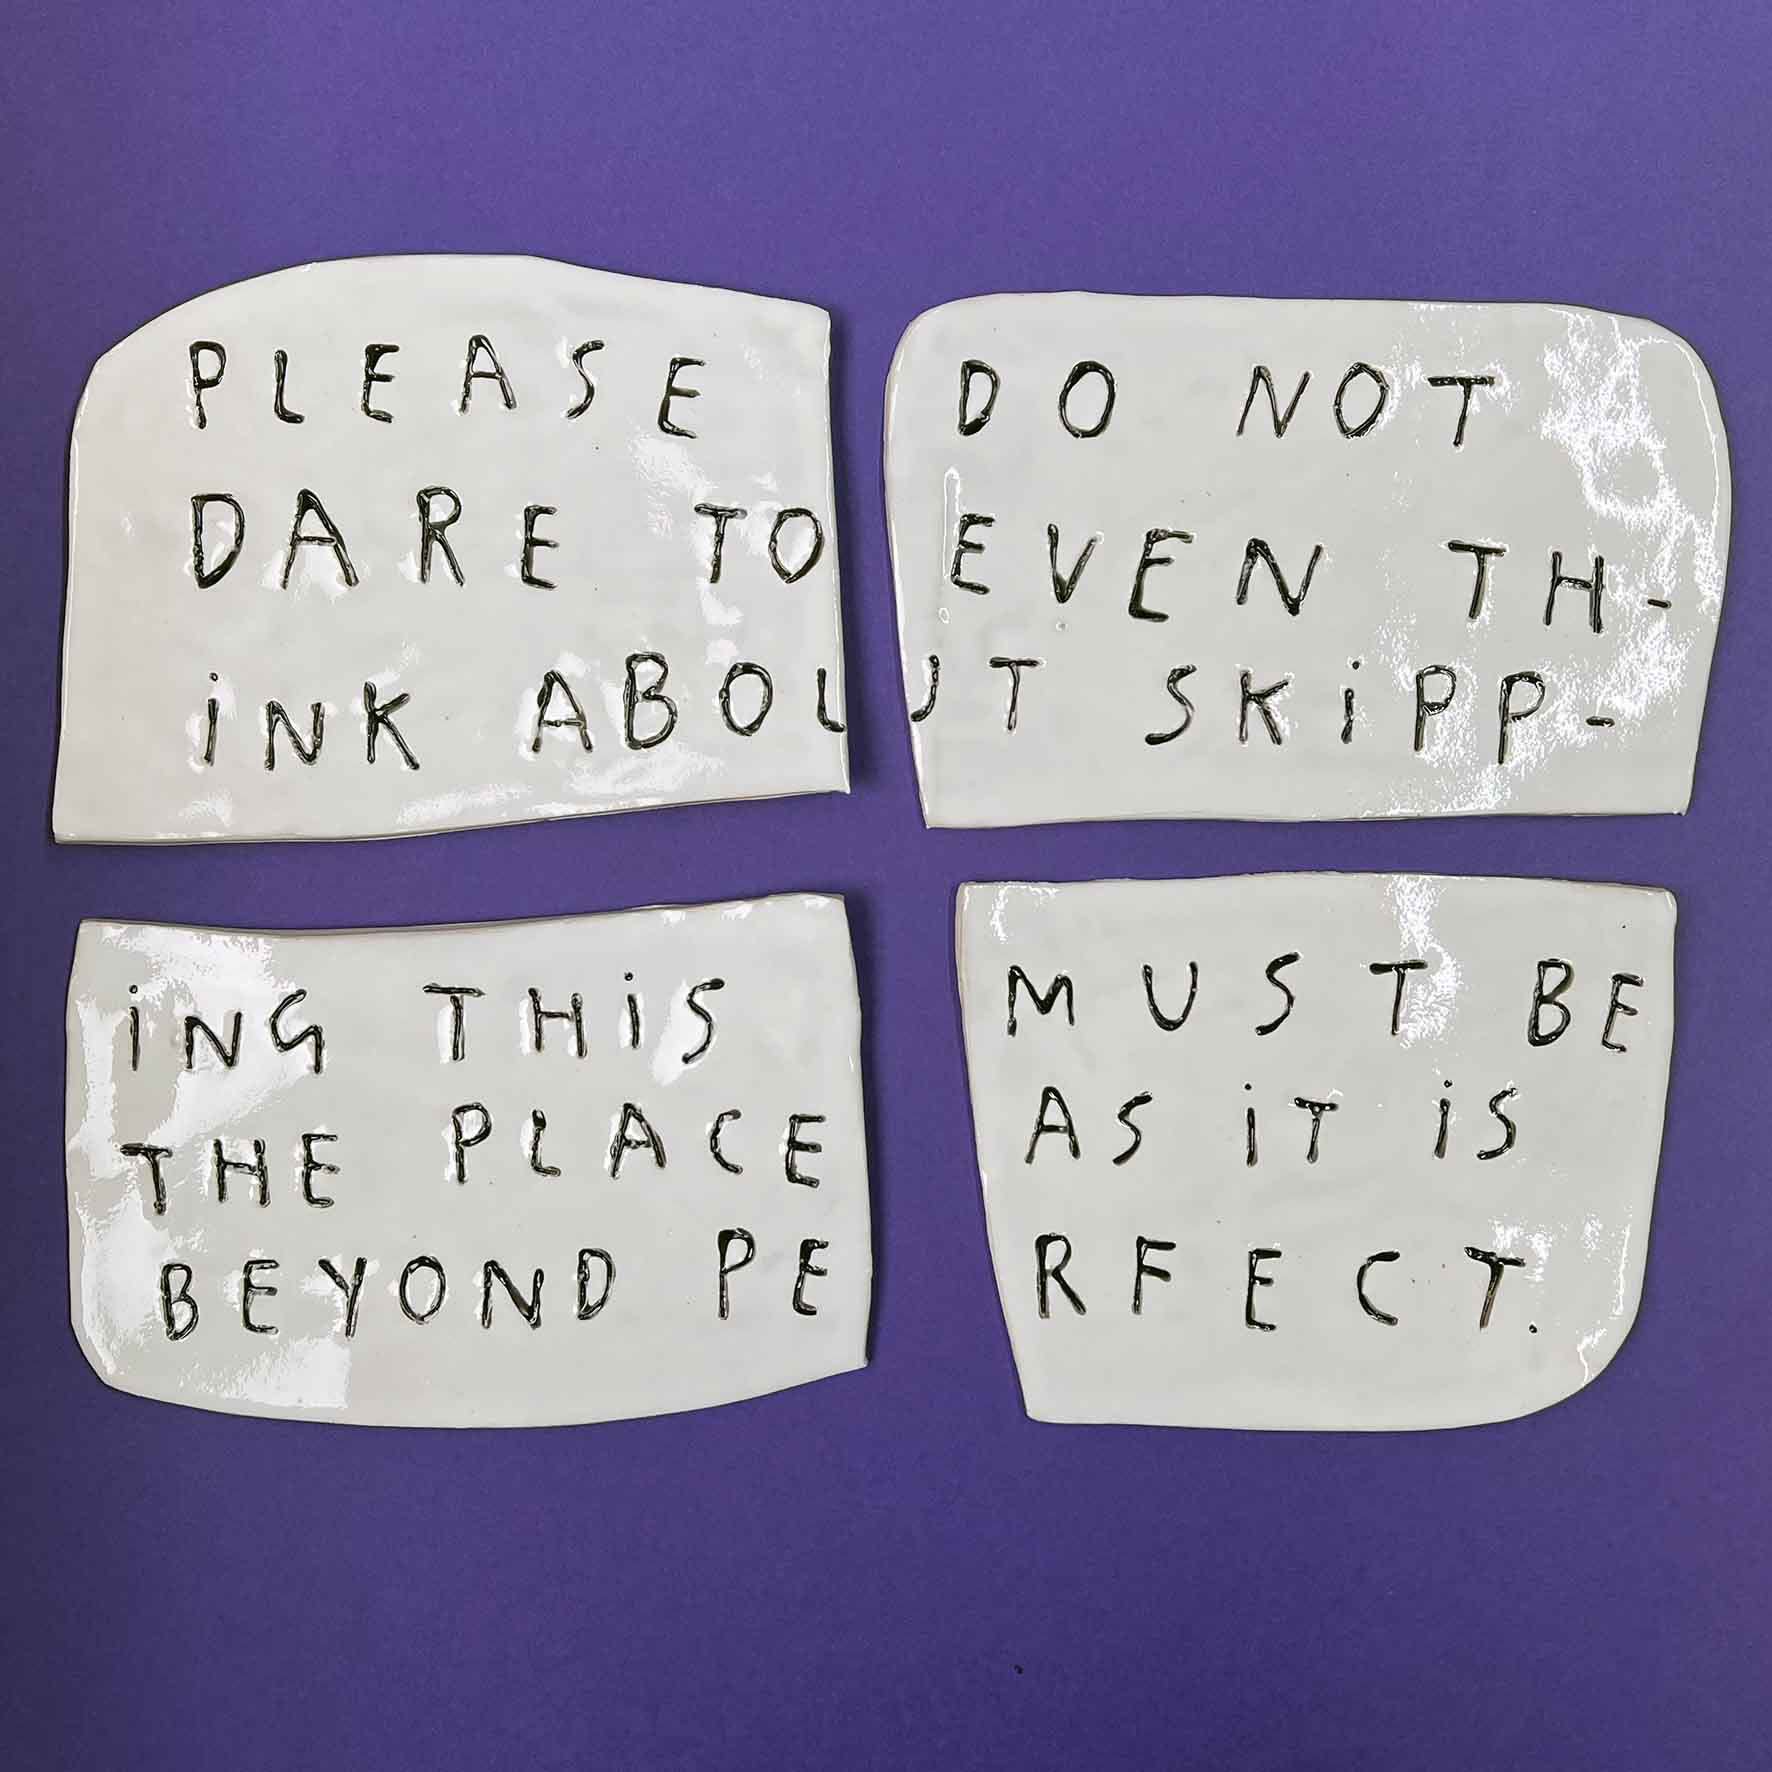 PLEASE DO NOT
DARE TO EVEN TH-
iNK ABOUT SKiPP-
iNG THiS MUST BE
THE PLACE AS iT iS
BEYOND PERFECT.